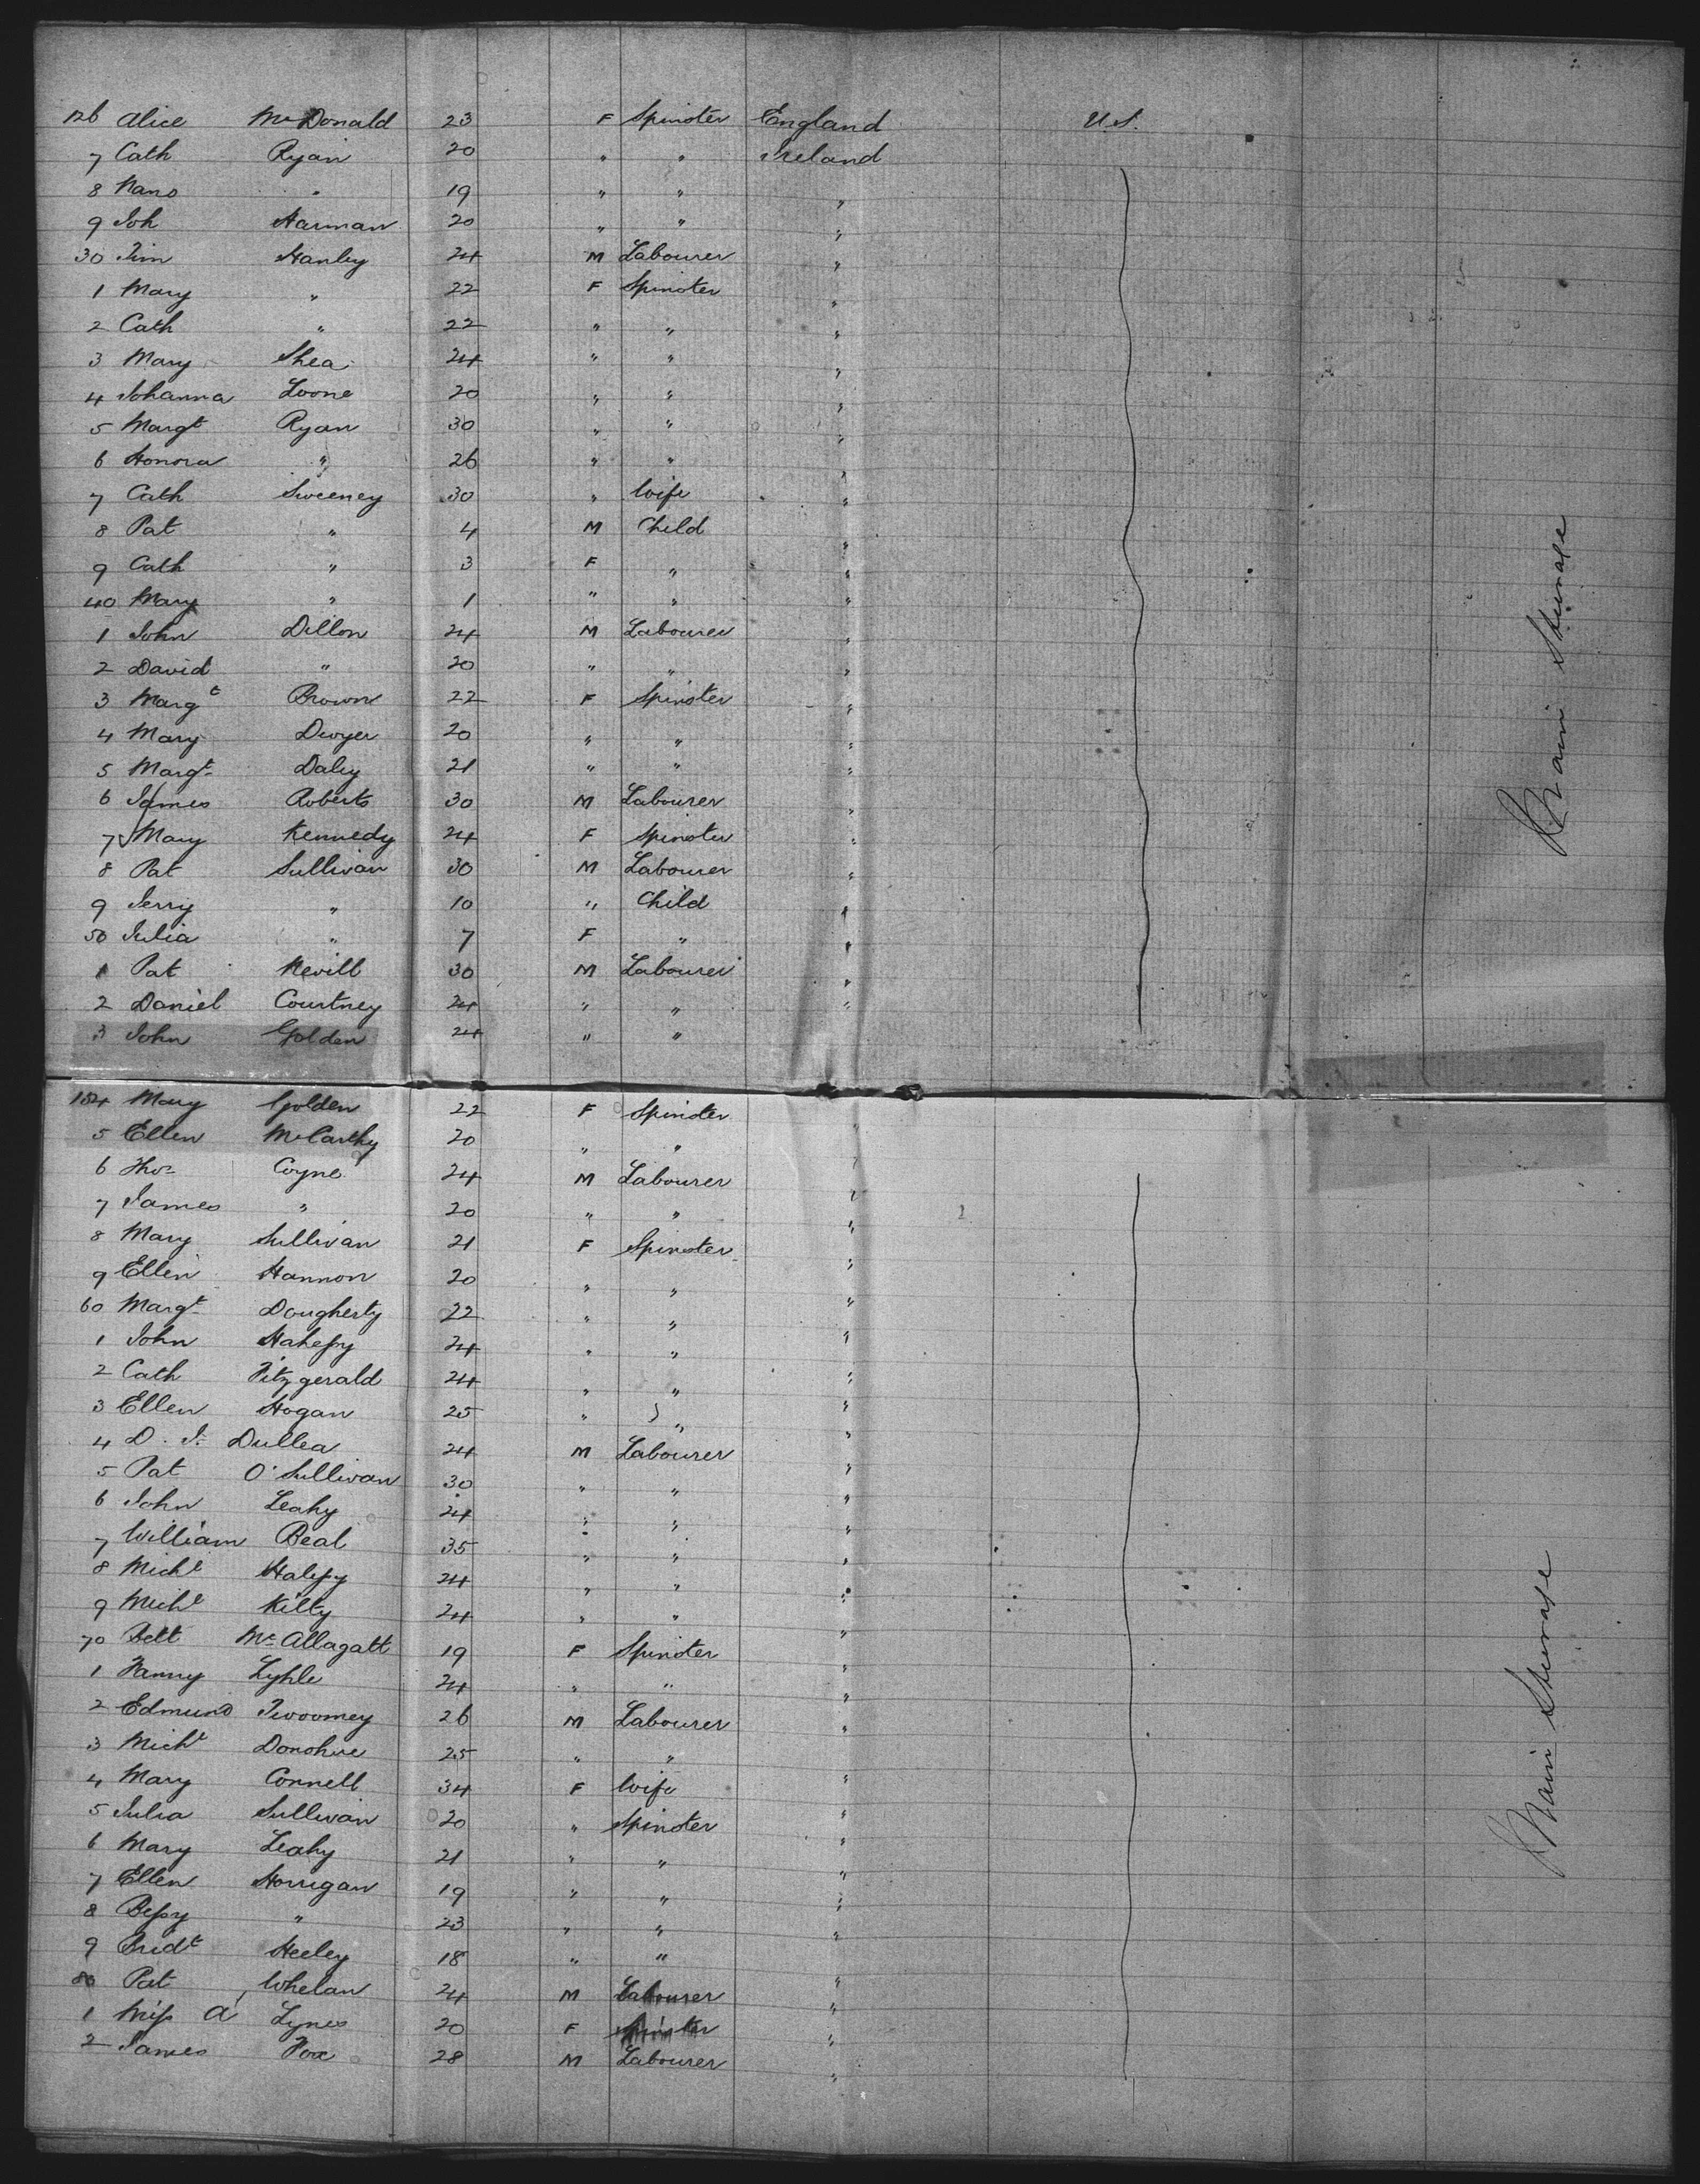 126 Alice McDonald 23 F Spinster England U.S.
7 Cath Ryan 20 " " Ireland
8 Nano " 19 " " "
9 Joh Harman 20 " " "
30 Jim Hanley 24 M Labourer "
1 Mary " 22 F Spinster "
2 Cath " 22 " " "
3 Mary Shea 24 " " "
4 Johanna Loone 20 " " "
5 Margt Ryan 30 " " "
6 Honora " 26 " " "
7 Cath Sweeney 30 " Wife "
8 Pat " 4 M Child "
9 Cath " 3 F " "
40 Mary " 1 " " "
1 John Dillon 24 M Labourer "
2 David " 20 " " "
3 Margt Brown 22 F Spinster "
4 Mary Dwyer 20 " " "
5 Margt Daley 21 " " "
6 James Roberts 30 M Labourer "
7 Mary Kennedy 24 F Spinster "
8 Pat Sullivan 30 M Labourer "
9 Jerry " 10 " Child "
50 Julia " 7 F " "
1 Pat Nevill 30 M Labourer "
2 Daniel Courtney 24 " " "
3 John Golden 24 " "
Main Steerage
154 Mary Golden 22 F Spinster "
5 Ellen McCarthy 20 " " "
6 Thos Coyne 24 M Labourer "
7 James " 20 " " "
8 Mary Sullivan 21 F Spinster "
9 Ellen Hannon 20 " " "
60 Margt Dougherty 22 " " "
1 John Hahessy 24 " " "
2 Cath Fitzgerald 24 " " "
3 Ellen Hogan 25 " " "
4 D. J. Dullea 24 M Labourer "
5 Pat O'Sullivan 30 " " "
6 John Leahy 24 " " "
7 William Beal 35 " " "
8 Michl Halessy 24 " " "
9 Michl Kilty 24 " " "
70 McAllagatt 19 F Spinster "
1 Fanny 24 " " "
2 Edmund Twoomey 26 M Labourer "
3 Michl Donohue 25 " " "
4 Mary Connell 34 F Wife "
5 Julia Sullivan 20 " Spinster "
6 Mary Leahy 21 " " "
7 Ellen Horrigan 19 " " "
8 Bessy " 23 " " "
9 Bridt Heeley 18 " " "
80 Pat Whelan 24 M Labourer "
1 Miss A Lynes 20 F Spinster "
2 James Fox 28 M Labourer "
Main Steerage